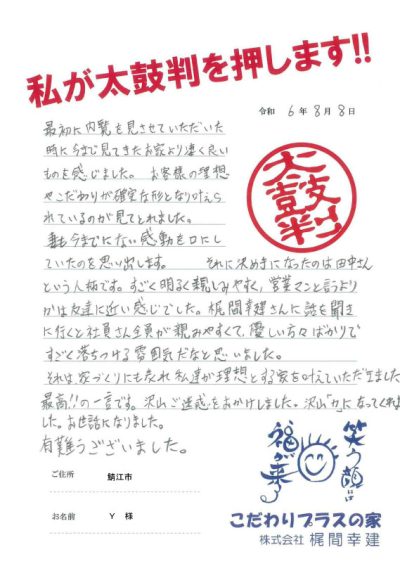 私が太鼓判を押します!!
令和 6年 8月 8日
最初に内覧を見させていただいた
時に今まで見てきたお家より凄く良い
ものを感じました。お客様の理想
やこだわりが確実な形となり叶えら
れているのが見てとれました。
妻も今までにない感動を口にし
ていたのを思い出します。 それに決めきになったのは田中さん
という人柄です。すごく明るく親しみやすく、営業マンと言うより
かは友達に近い感じでした。梶間幸建さんに話を聞き
に行くと社員さん全員が親みやすくて、優しい方々ばかりで
すごく落ちつける雰囲気だなと思いました。
それは家づくりにも表れ私達が理想とする家を叶えていただきました
最高!!の一言です。沢山ご迷惑をおかけしました。沢山「力」になってくれま
した。お世話になりました。
有難うございました。
太鼓判
ご住所 鯖江市
お名前 Y 様
笑う顔には
福が来る
こだわりプラスの家
株式会社 梶間幸建